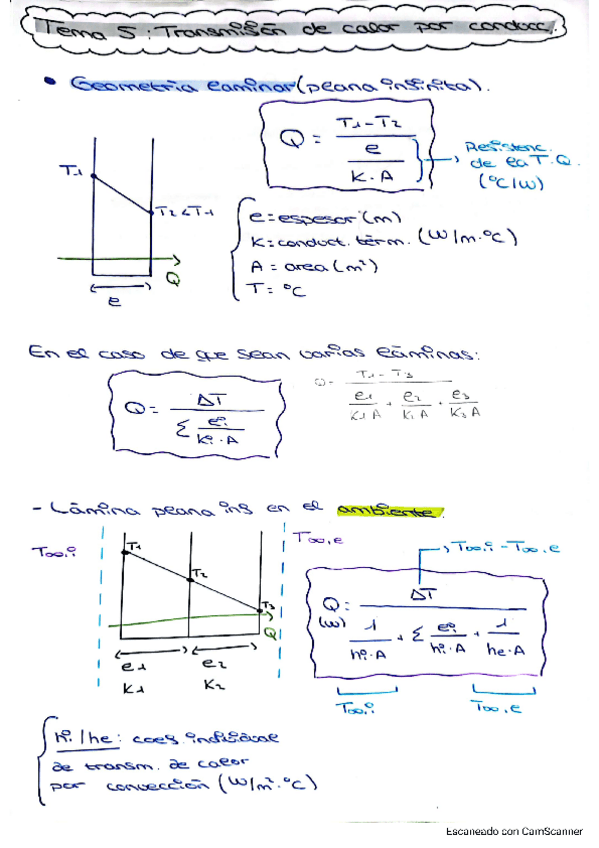 Tema 5: Transmisión de calor por conducc.
• Geometría laminar (plana infinita).
Q = T1-T2 / (e / K·A)
Resistenc. de la T.Q. (°C/W)
T1
T2<T1
Q
e
e = espesor (m)
K = conduct. térm. (W/m·°C)
A = area (m²)
T = °C
En el caso de que sean varias láminas:
Q = ΔT / (Σ ei / Ki·A)
Q = T1-T3 / (e1 / K1A + e2 / K2A + e3 / K3A)
- Lámina plana ins en el ambiente.
T∞,i
T1
T2
T3
T∞,e
Q
e1
e2
K1
K2
T∞,i - T∞,e
Q: (W) ΔT / (1 / hi·A + Σ ei / Ki·A + 1 / he·A)
T∞,i
T∞,e
hi/he: coef. individual
de transm. de calor
por convección (W/m²·°C)
Escaneado con CamScanner